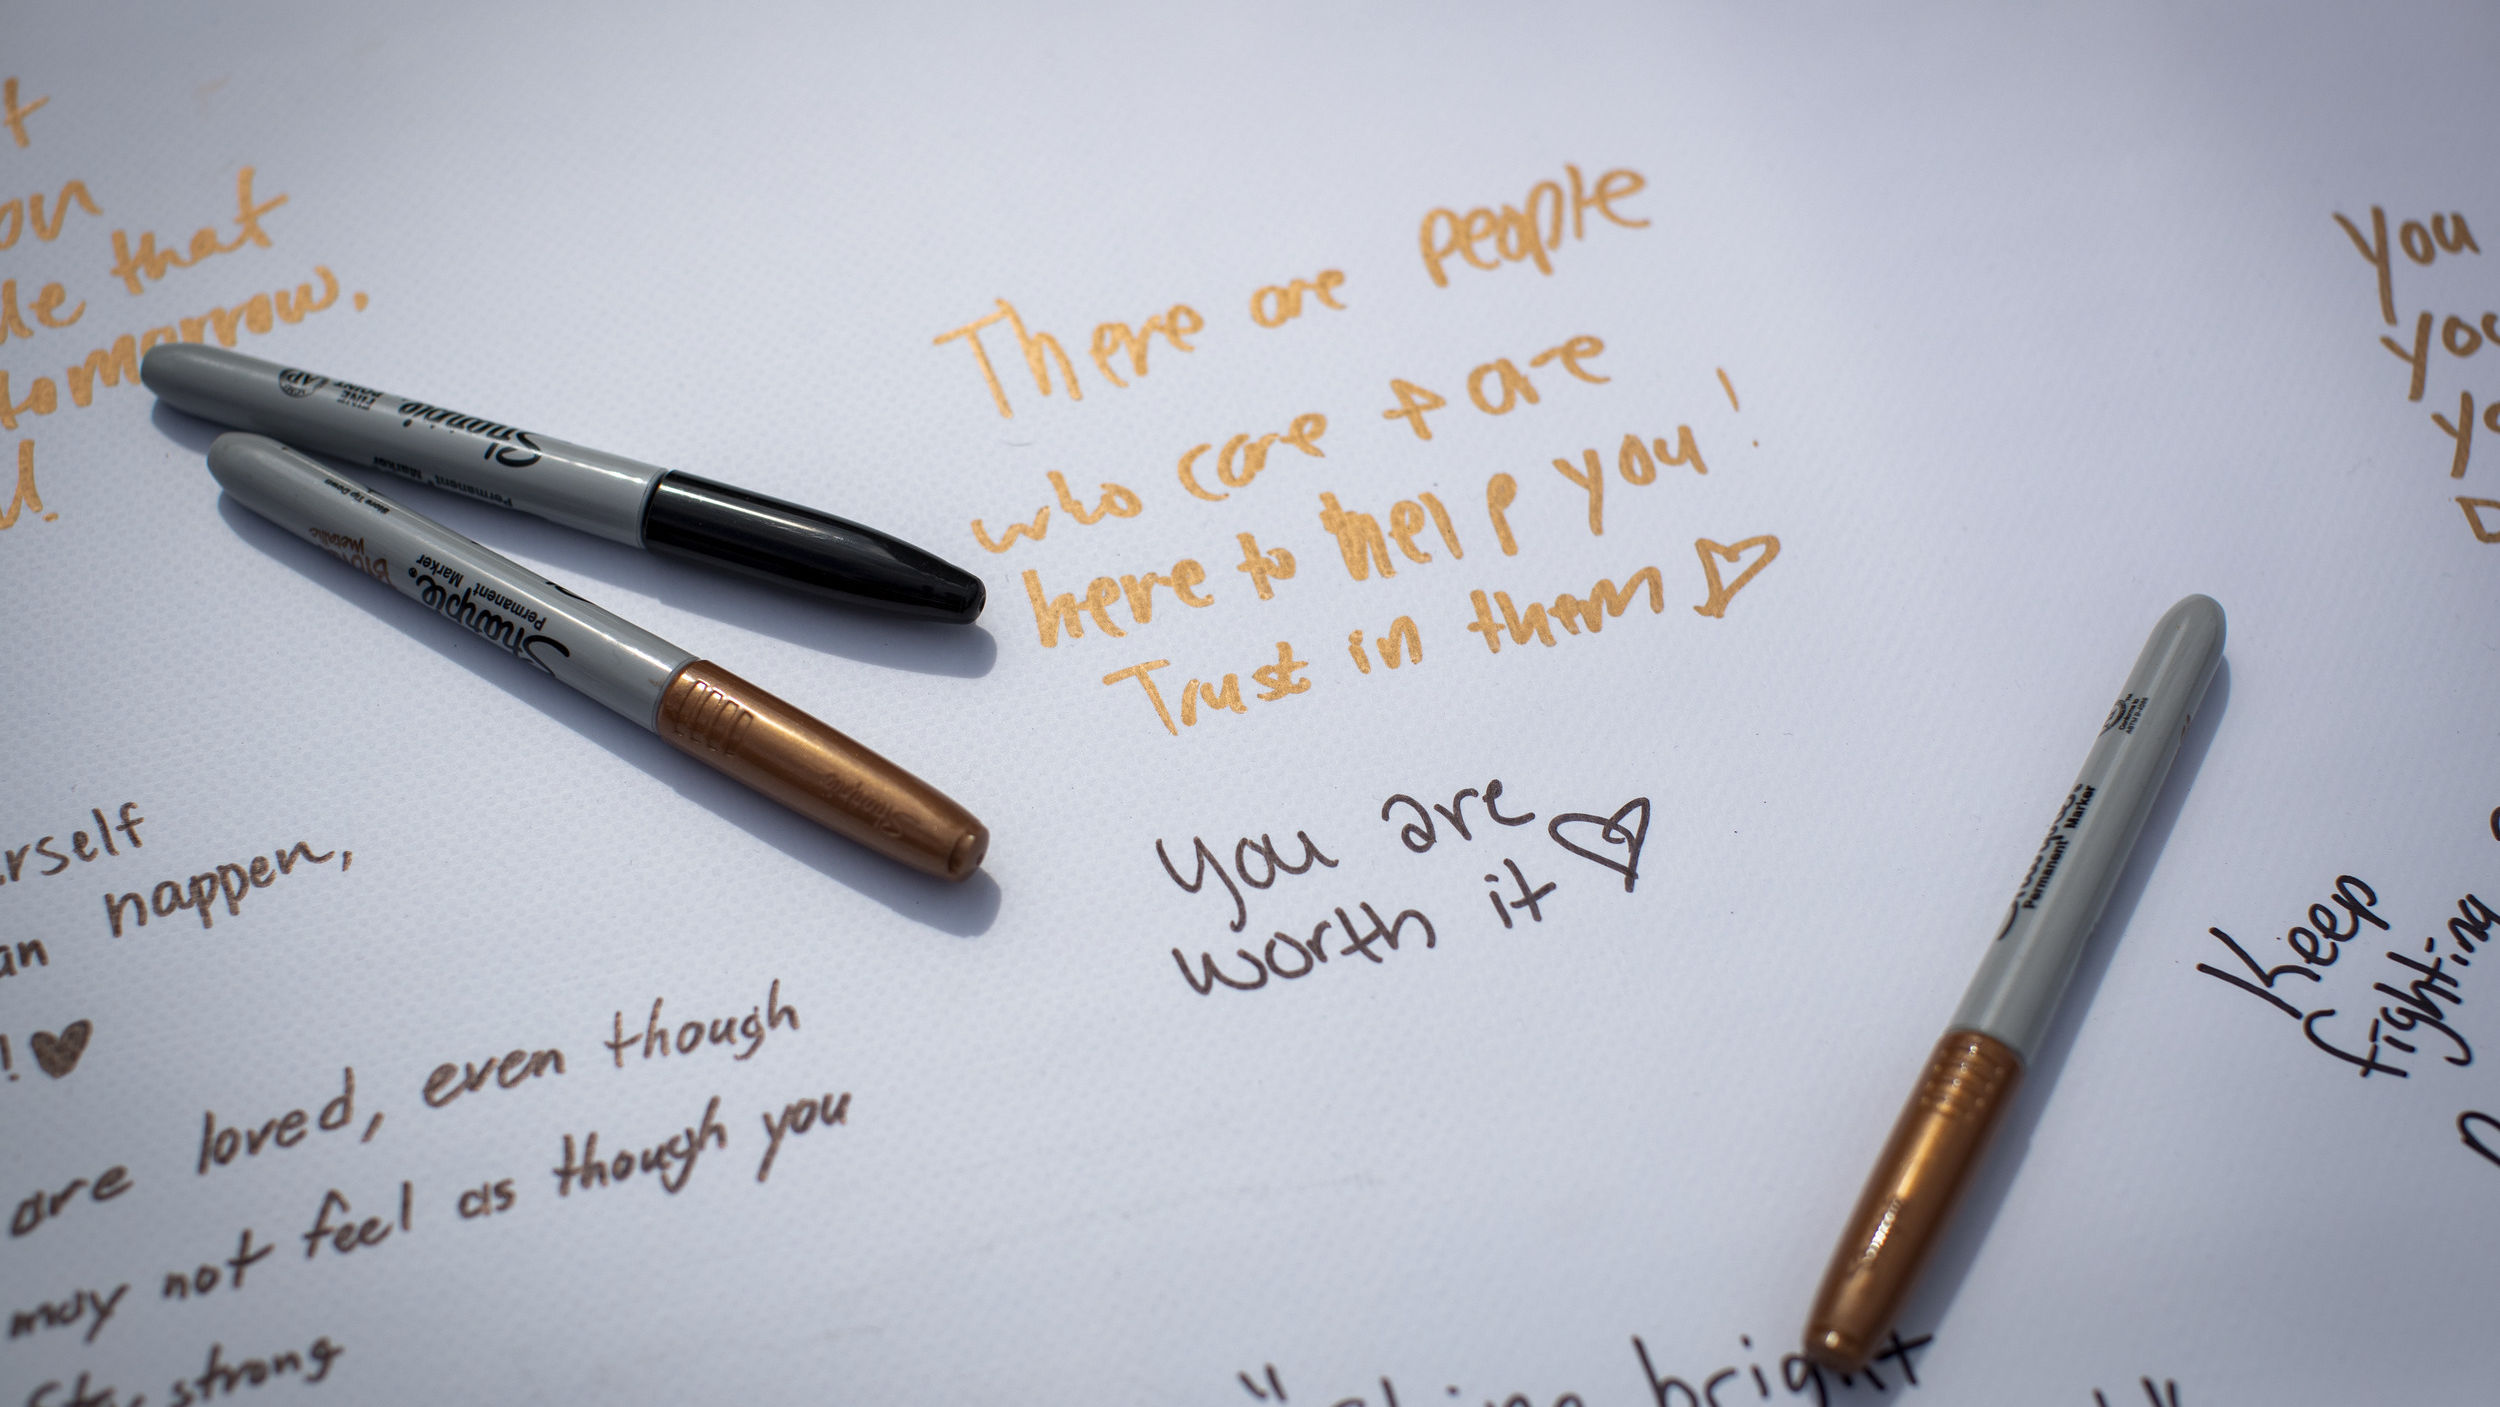 that
tomorrow.
There are people
who care + are
here to help you!
Trust in them
You are
worth it
You
Keep
fighting
happen,
are loved, even though
may not feel as though you
strong
"shine bright
Sharpie
Permanent Marker
FINE
POINT
Sharpie.
Permanent Marker
metallic
Store Tip Down
Sharpie
Permanent Marker
Conforms to
ASTM D-4236